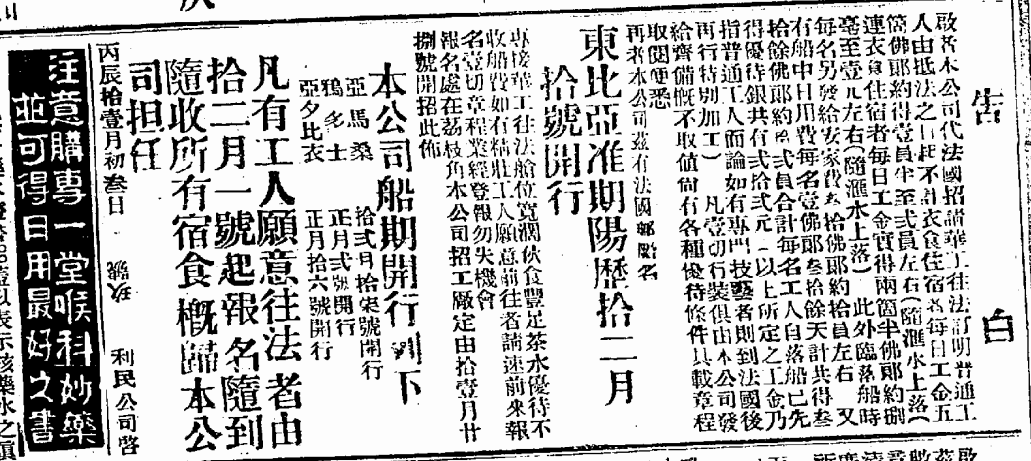 告白
啟者本公司代法國招請華工往法訂明普通工
人由抵法之日起不計衣食住宿者每日工金五
箇佛郎約得壹員半至弍員左右(隨滙水上落)
連衣食住宿者每日工金實得兩箇半佛郎約捌
毫至壹元左右(隨滙水上落)此外臨落船時
每名另發給安家費叁拾佛郎約拾員左右又
有船中日用費每名壹佛郎叁拾餘天計共得叁
拾餘佛郎約 弍員合計每名工人自落船已先
得優待銀共有弍拾弍元(以上所定之工金乃
指普通工人而論如有專門技藝者則到法國後
再行特別加工)凡壹切行裝俱由本公司發
給齊備慨不取值尚有各種優待條件具載章程
取閱便悉
再者本公司茲有法國郵船名
東比亞准期陽歷拾二月
拾號開行
專接華工往法艙位寬濶伙食豐足茶水優待不
收船費如有精壯工人願意前往者請速前來報
名壹切章程業經登報勿失機會
報名處在荔枝角本公司招工廠定由拾壹月廿
捌號開招此佈
本公司船期開行列下
亞馬桑 拾弍月拾柒號開行
鴉多士 正月弍號開行
亞夕比衣 正月拾六號開行
凡有工人願意往法者由
拾二月一號起報名隨到
隨收所有宿食概歸本公
司担任
丙辰拾壹月初叁日 號玖 利民公司啓
注意購專一堂喉科妙藥
並可得日用最好之書